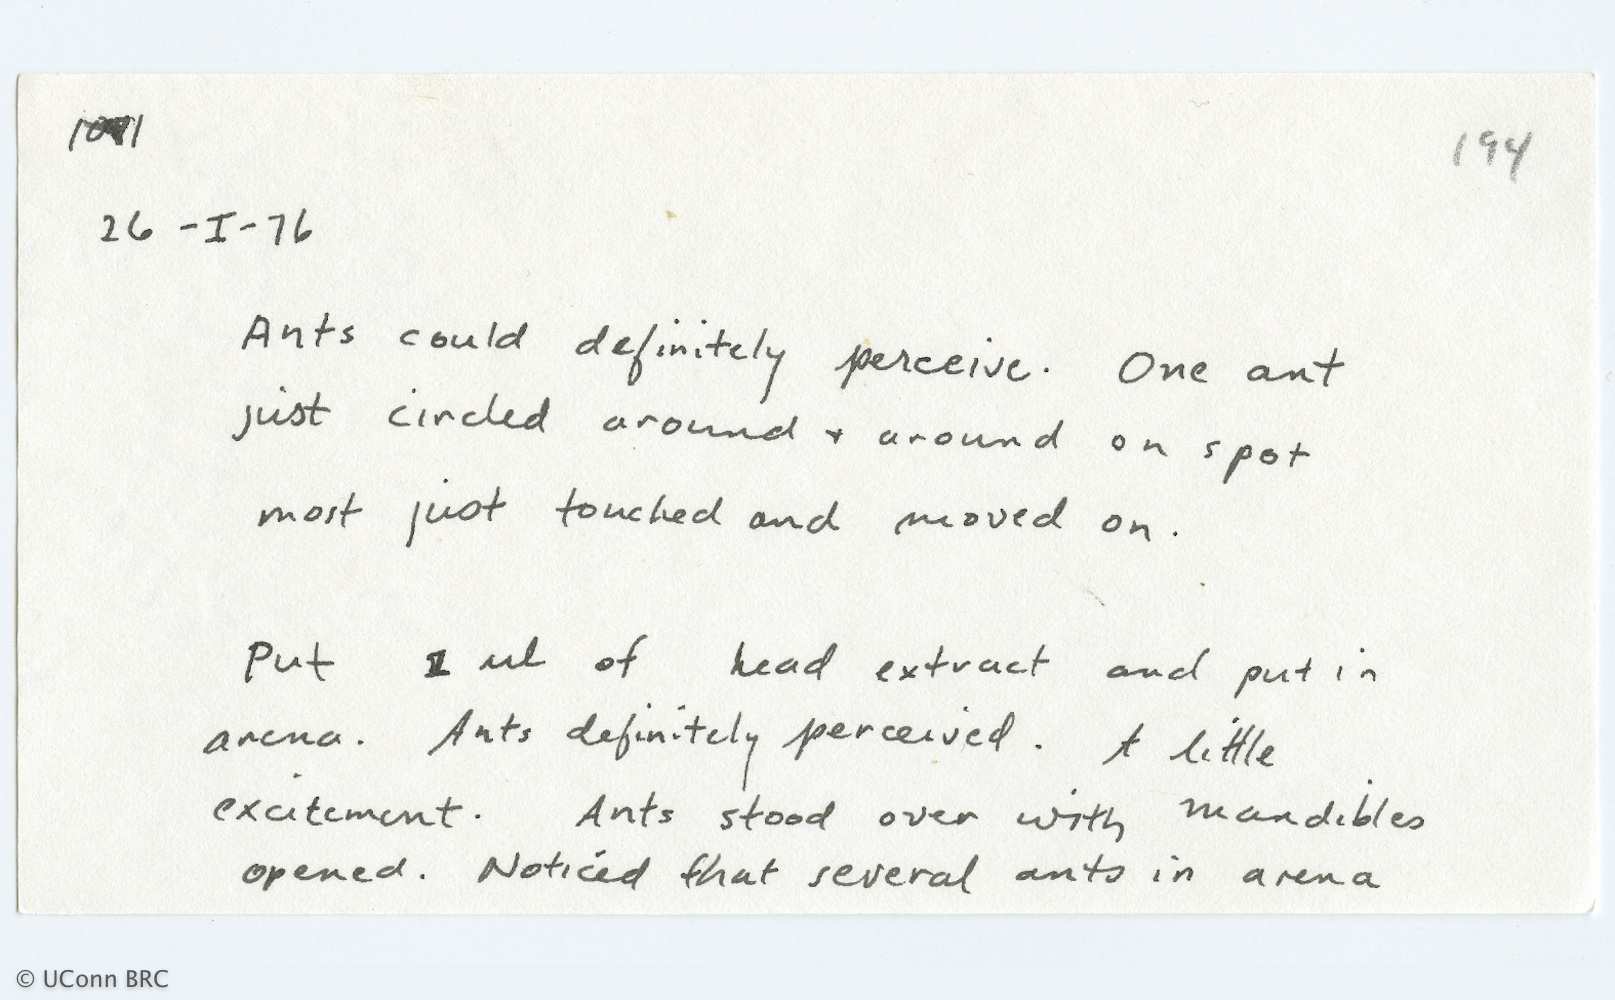 194
26-I-76
Ants could definitely perceive. One ant
just circled around + around on spot
most just touched and moved on.
Put 1 ul of head extract and put in
arena. Ants definitely perceived. A little
excitement. Ants stood over with mandibles
opened. Noticed that several ants in arena
© UConn BRC